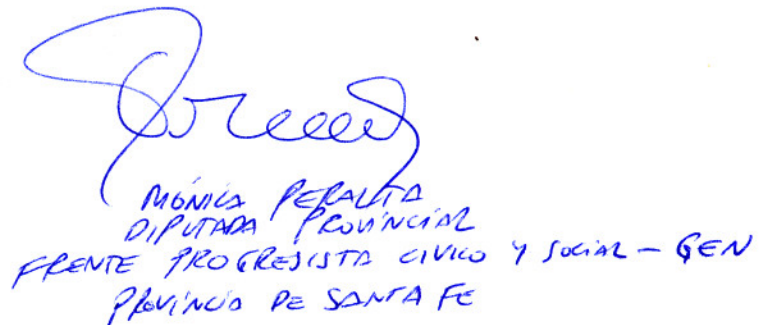 MÓNICA PERALTA
DIPUTADA PROVINCIAL
FRENTE PROGRESISTA CIVICO Y SOCIAL - GEN
PROVINCIA DE SANTA FE